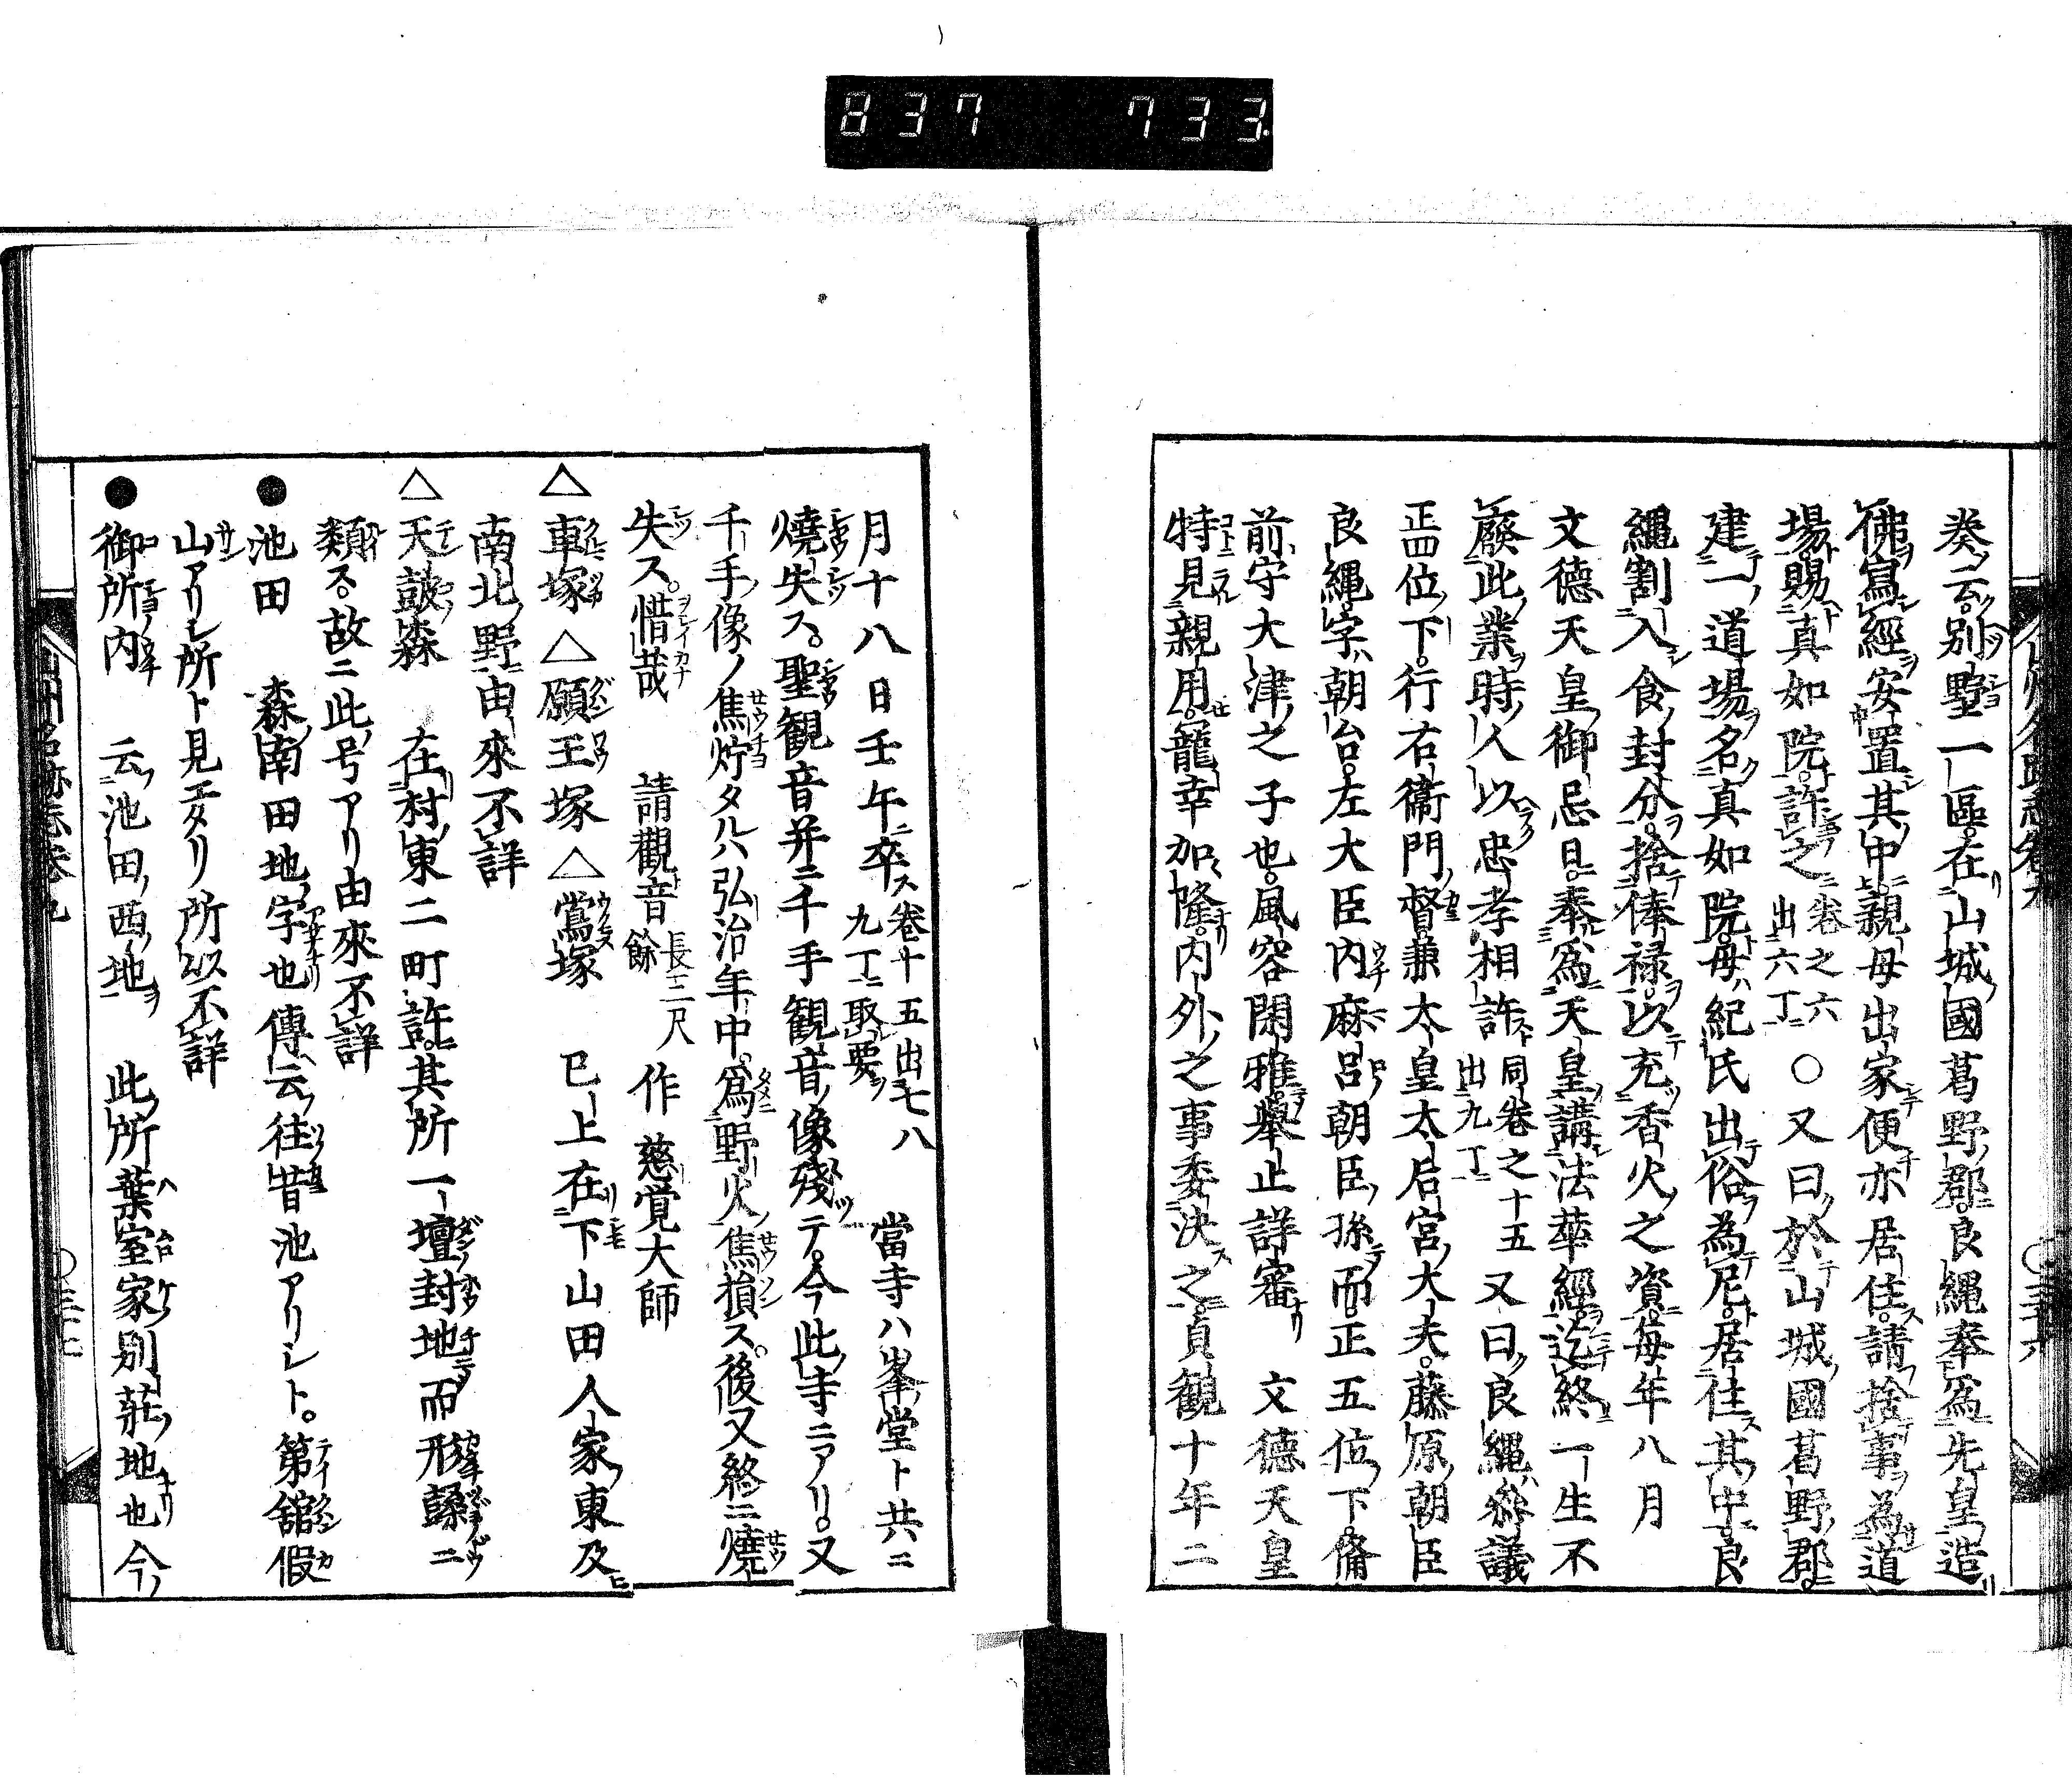 837 733
癸云別墅一區在山城國葛野郡良繩奉爲先皇造
佛寫經安置其中親母出家便亦居住請捨事為道
場賜真如院許之卷之六出六丁〇又曰於山城國葛野郡
建一道場名真如院母紀氏出俗為尼居住其中良
繩割入食封分捨俸禄以充香火之資毎年八月
文德天皇御忌日奉爲天皇講法華經迄終一生不
廢此業時人以忠孝相許同卷之十五出九丁又曰良繩叅議
正四位下行右衞門督兼太皇太后宮大夫藤原朝臣
良繩字朝台左大臣内麻呂朝臣孫而正五位下備
前守大津之子也風容閑雅舉止詳審 文德天皇
特見親用寵幸加隆内外之事委決之貞観十年二
月十八日壬午卒ス卷十五出七八九丁ニ取要 當寺ハ峯堂ト共ニ
燒失ス。聖観音并ニ千手観音像殘テ。今此寺ニアリ。又
千手像ノ焦貯タルハ弘治年中。爲野火焦損ス。後又終ニ燒
失ス。惜哉 請觀音長二尺餘 作慈覚大師
△車塚△願王塚△鴬塚 已上在下山田人家東及
南北野由來不詳
△天皷森 在村東二町許其所一壇封地而形鼕ニ
類ス。故ニ此号アリ由來不詳
●池田 森南田地字也傳云往昔池アリシト。第舘假
山アリシ所ト見エタリ所以不詳
●御所内 云池田西地 此所葉室家別莊地也今